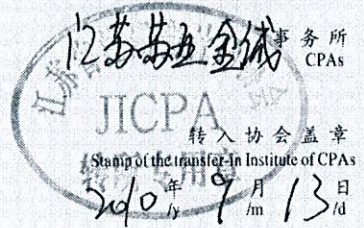 江苏苏亚金诚 事务所
CPAs
江苏
JICPA
转入协会盖章
Stamp of the transfer-in Institute of CPAs
专用章
2010 年 9 月 13 日
/y /m /d